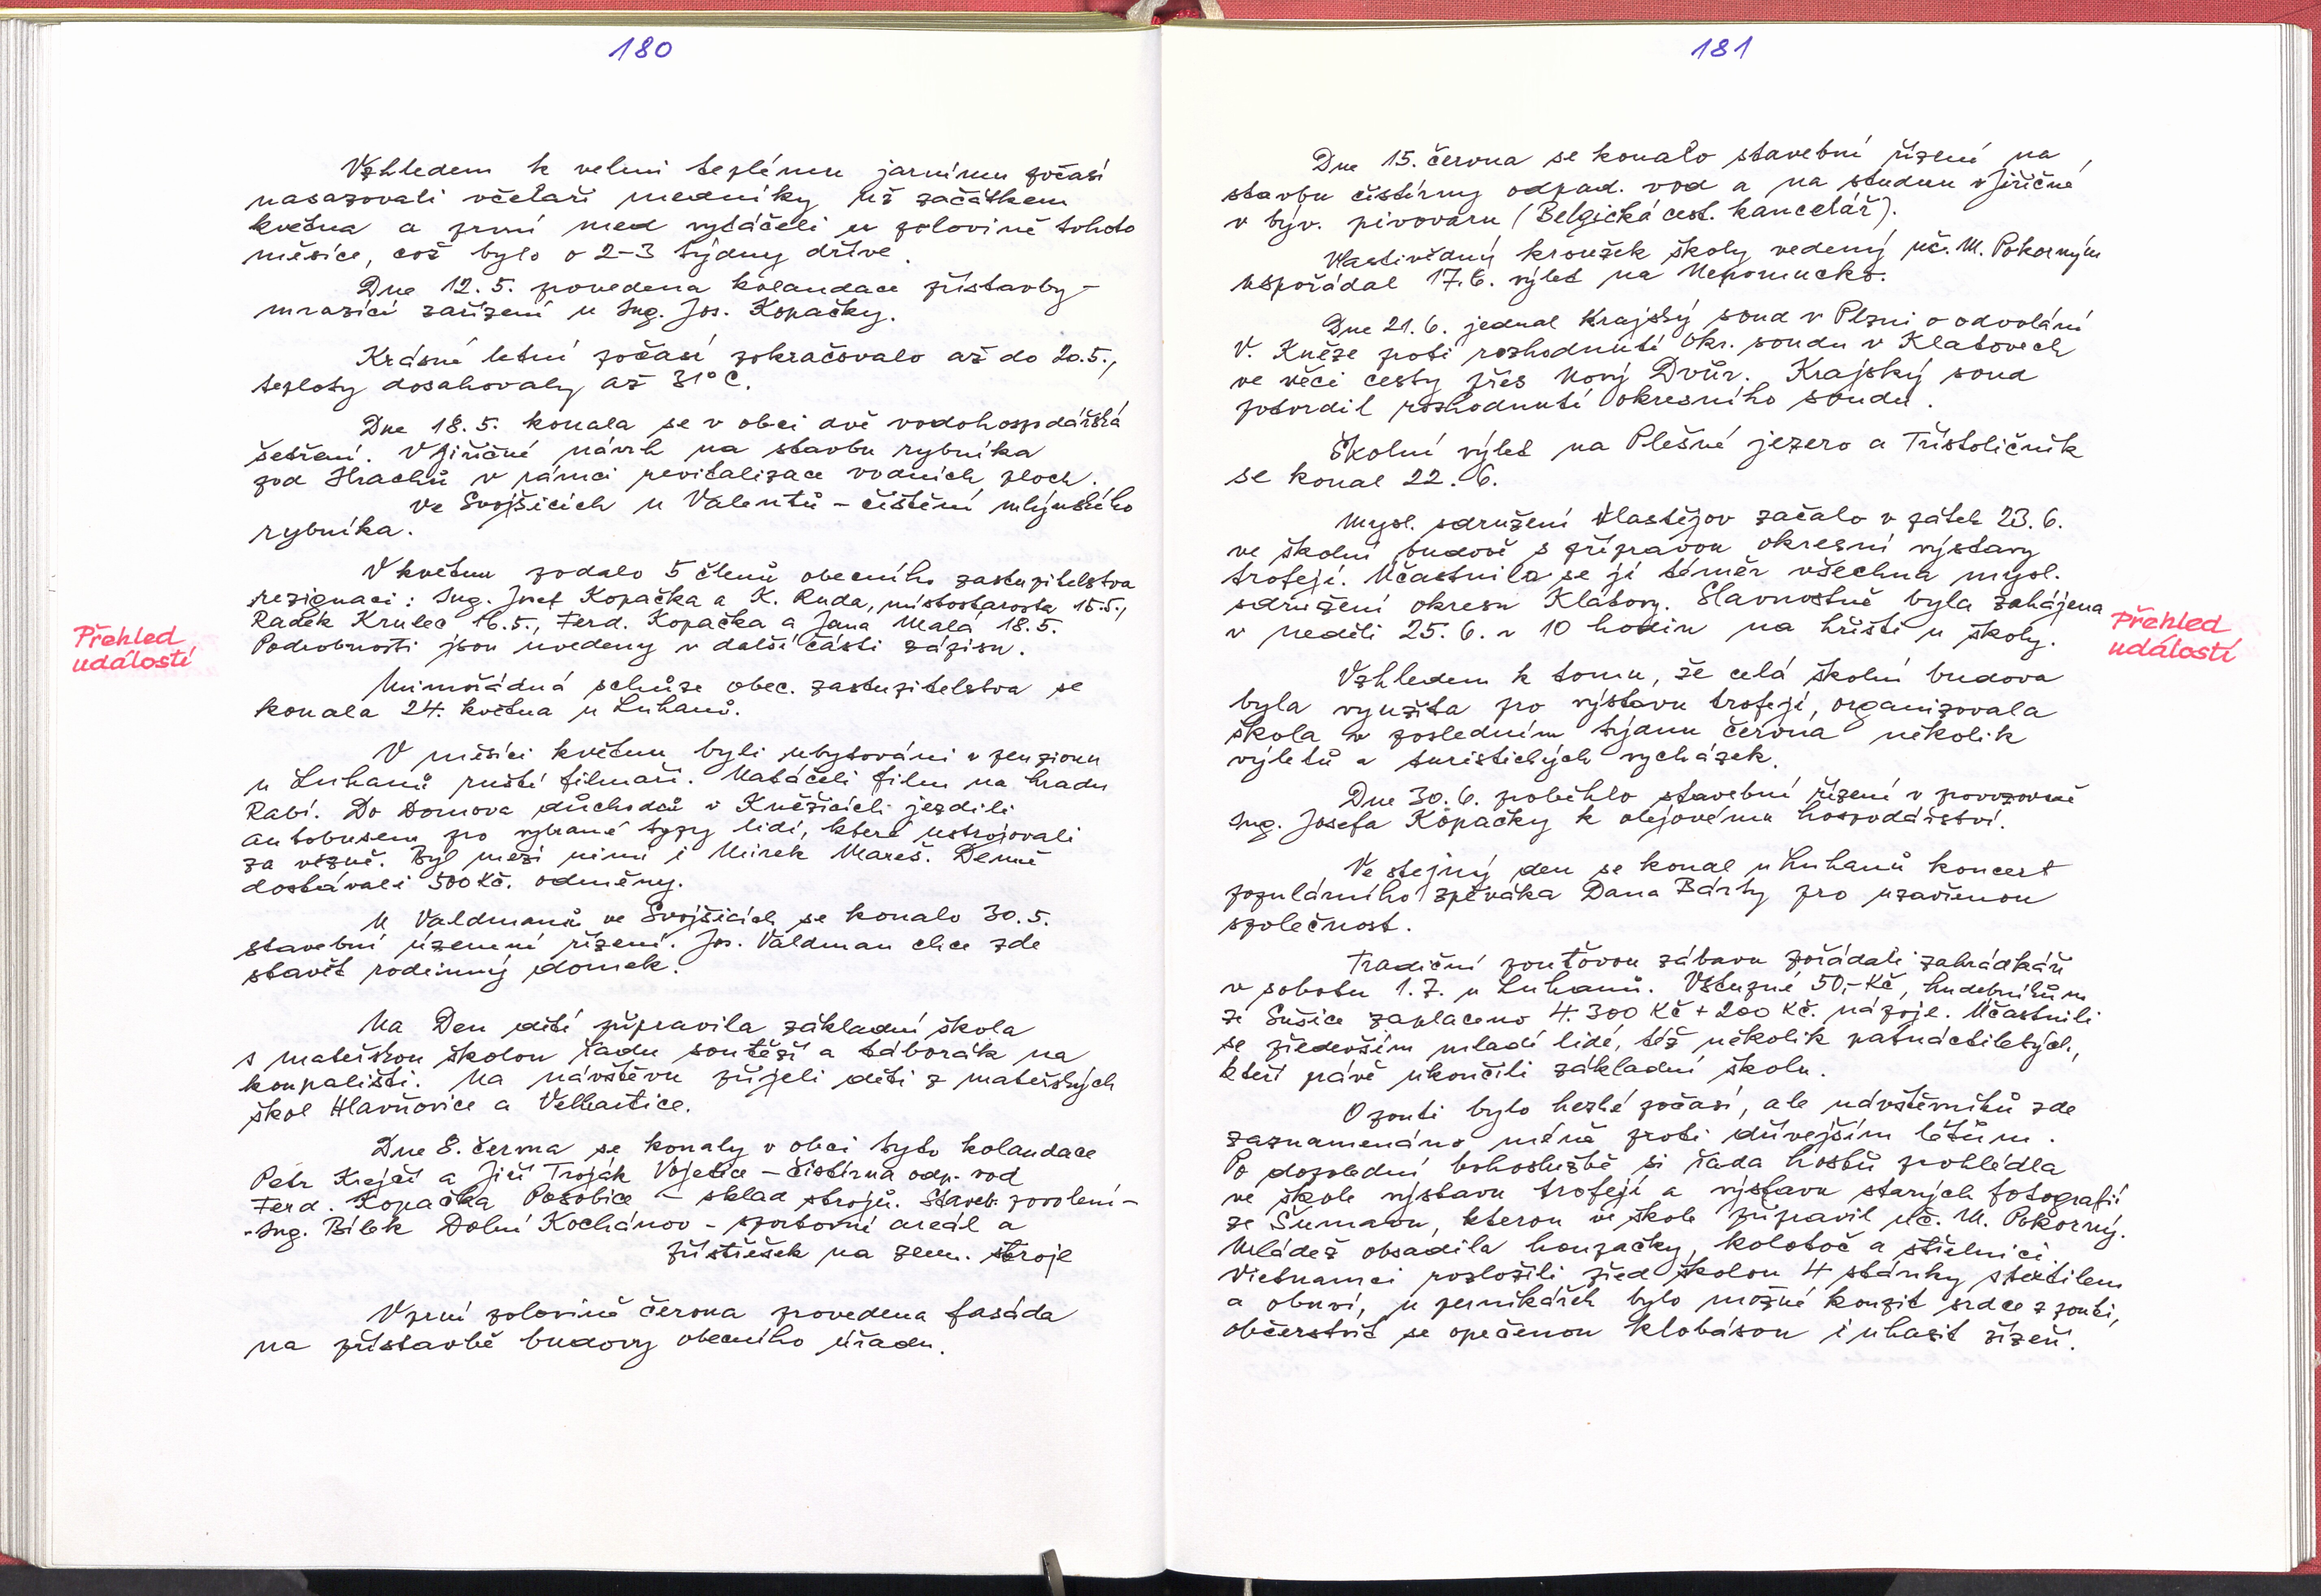 180
Vzhledem k velmi teplému jarnímu počasí
nasazovali včelaři medníky již začátkem
května a první med vytáčeli v polovině tohoto
měsíce, což bylo o 2-3 týdny dříve.
Dne 12.5. provedena kolaudace přístavby-
mrazící zařízení u Ing. Jos. Kopačky.
Krásné letní počasí pokračovalo až do 20.5.,
teploty dosahovaly až 31°C.
Dne 18.5. konala se v obci dvě vodohospodářská
šetření. V Jiřičné návrh na stavbu rybníka
pod Hrachů v rámci revitalizace vodních ploch.
Ve Svojšicích u Valentů - čištění mlýnského
rybníka.
V květnu podalo 5 členů obecního zastupitelstva
rezignaci: Ing. Josef Kopačka a K. Ruda, místostarosta 15.5.,
Radek Krulec 16.5., Ferd. Kopačka a Jana Malá 18.5.
Podrobnosti jsou uvedeny v další části zápisu.
Přehled
událostí
Mimořádná schůze obec. zastupitelstva se
konala 24. května u Luhanů.
V měsíci květnu byli ubytováni v penzionu
u Luhanů ruští filmaři. Natáčeli film na hradu
Rabí. Do Domova důchodců v Kněžicích jezdili
autobusem pro vybrané typy lidí, které ustrojovali
za vězně. Byl mezi nimi i Mirek Mareš. Denně
dostávali 500 Kč. odměny.
U Valdmanů ve Svojšicích se konalo 30.5.
stavební územní řízení. Jos. Valdman chce zde
stavět rodinný domek.
Na Den dětí připravila základní škola
s mateřskou školou řadu soutěží a táborák na
koupališti. Na návštěvu přijeli děti z mateřských
škol Hlavňovice a Velhartice.
Dne 8. června se konaly v obci tyto kolaudace
Petr Krejčí a Jiří Troják Vojetice - čistírna odp. vod
Ferd. Kopačka Posobice - sklad strojů. Staveb. povolení-
-Ing. Bílek Dolní Kochánov - sportovní areál a
přístřešek na zem. stroje
V první polovině června provedena fasáda
na přístavbě budovy obecního úřadu.
181
Dne 15. června se konalo stavební řízení na
stavbu čistírny odpad. vod a na studnu v Jiřičné
v býv. pivovaru (Belgická cest. kancelář).
Vlastivědný kroužek školy vedený uč. M. Pokorným
uspořádal 17.6. výlet na Nepomucko.
Dne 21.6. jednal Krajský soud v Plzni o odvolání
V. Kněze proti rozhodnutí Okr. soudu v Klatovech
ve věci cesty přes Nový Dvůr. Krajský soud
potvrdil rozhodnutí okresního soudu.
Školní výlet na Plešné jezero a Třístoličník
se konal 22.6.
Mysl. sdružení Vlastějov začalo v pátek 23.6.
ve školní budově s přípravou okresní výstavy
trofejí. Účastnila se jí téměř všechna mysl.
sdružení okresu Klatovy. Slavnostně byla zahájena
v neděli 25.6. v 10 hodin na hřišti u školy.
Přehled
událostí
Vzhledem k tomu, že celá školní budova
byla využita pro výstavu trofejí, organizovala
škola v posledním týdnu června několik
výletů a turistických vycházek.
Dne 30.6. proběhlo stavební řízení v provozovně
Ing. Josefa Kopačky k olejovému hospodářství.
Ve stejný den se konal u Luhanů koncert
populárního zpěváka Dana Bárty pro uzavřenou
společnost.
Tradiční pouťovou zábavu pořádali zahrádkáři
v sobotu 1.7. u Luhanů. Vstupné 50,- Kč, hudebníkům
ze Sušice zaplaceno 4.300 Kč + 200 Kč. nápoje. Účastnili
se především mladí lidé, též několik patnáctiletých,
kteří právě ukončili základní školu.
O pouti bylo hezké počasí, ale návštěvníků zde
zaznamenáno méně proti dřívejším létům.
Po dopolední bohoslužbě si řada hostů prohlédla
ve škole výstavu trofejí a výstavu starých fotografií
ze Šumavy, kterou ve škole připravil uč. M. Pokorný.
Mládež obsadila houpačky, kolotoč a střelnici.
Vietnamci rozložili před školou 4 stánky s textilem
a obuví, u perníkářek bylo možné koupit srdce z pouti,
občerstvit se opečenou klobásou i uhasit žízeň.